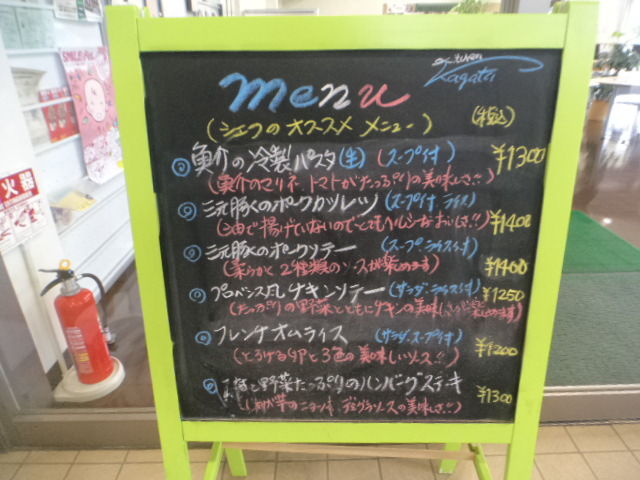 Kitchen Kagata
menu
(シェフのオススメメニュー) (税込)
魚介の冷製パスタ(生) (スープ付) ¥1300
(魚介のマリネ、トマトがたっぷりの美味しさ!!)
三元豚のポークカツレツ (スープ付、ライス) ¥1400
(油で揚げていないのでとてもヘルシーなおいしさ!!)
三元豚のポークソテー (スープ、ライス付) ¥1400
(柔らかく2種類のソースが楽しめます)
プロバンス風チキンソテー (サラダ、ライス付) ¥1250
(たっぷりの野菜とともにチキンの美味しさが楽しめます)
フレンチオムライス (サラダ、スープ付) ¥1200
(とろける卵と3色の美味しいソース!!)
と野菜たっぷりのハンバーグステキ ¥1300
芋のニョッキ、デミグラソースの美味しさ!!)
火器
SMILE